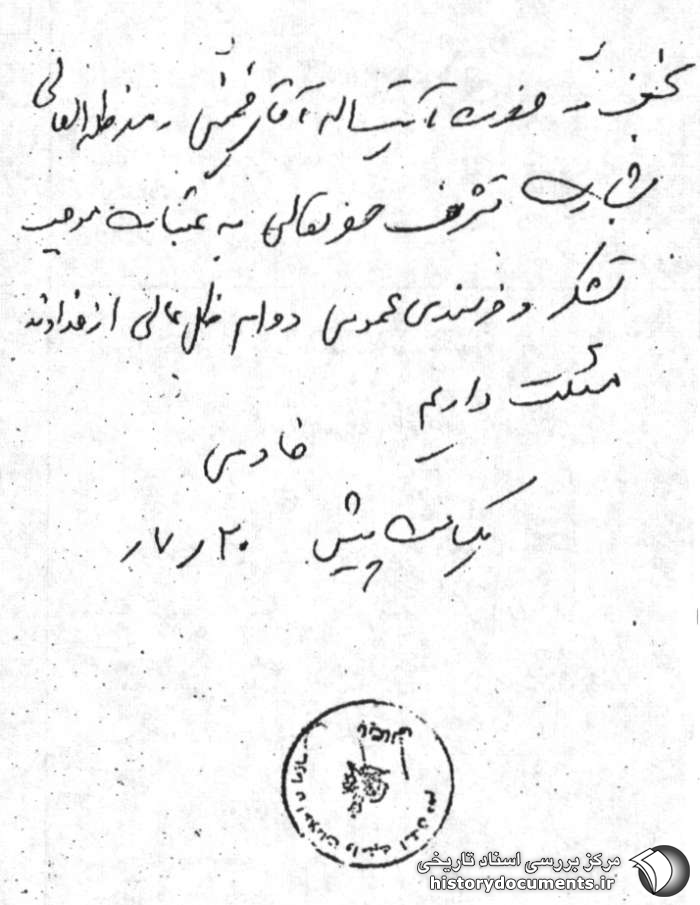 نجف – حضرت آیت‌اله آقای خمینی – مد ظله العالی
بشارت تشرف حضرتعالی به عتبات موجب
تشکر و خرسندی عموم دوام ظل عالی از خداوند
مسئلت داریم
خادمی
یکساعت پیش ۲۰ ر ۷ ر
سازمان اطلاعات و امنیت
مرکز بررسی اسناد تاریخی
historydocuments.ir